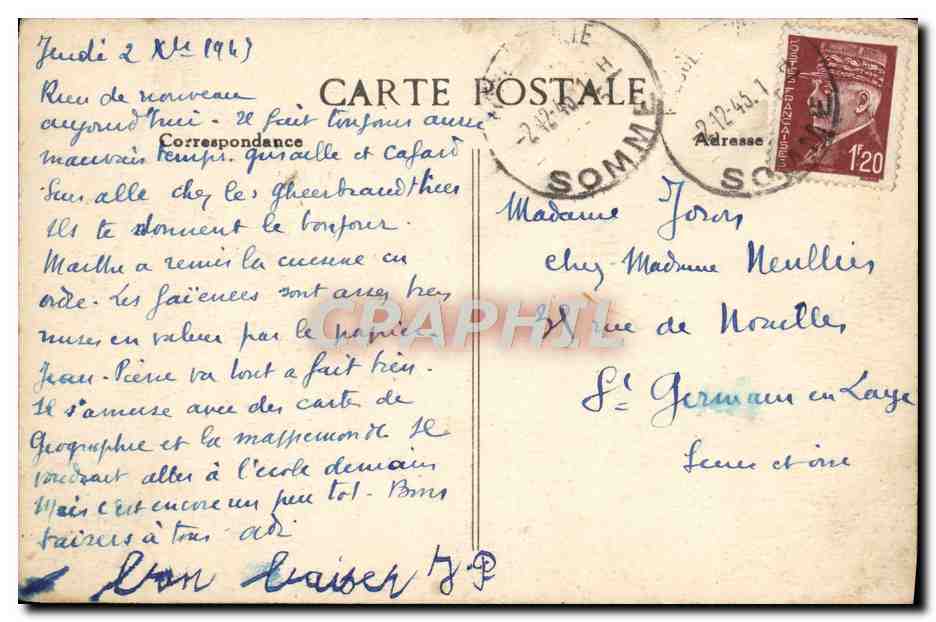 Jeudi 2 Xbre 1943
CARTE POSTALE
Correspondance
Adresse
Rien de nouveau
aujourd'hui - Il fait toujours aussi
mauvais temps. grisaille et cafard
Suis allé chez les
Ils te donnent le bonjour.
Marthe a remis la cuisine en
ordre - Les faïences sont assez bien
mises en valeur par le papier -
Jean-Pierre va tout a fait bien -
Il s'amuse avec des cartes de
Geographie et la mappemonde Il
voudrait aller à l'école demain
Mais c'est encore un peu tot - Bons
baisers à tous
bon baiser J.P
Madame
chez Madame
rue de Noailles
St Germain en Laye
Seine et oise
SOMME
POSTES FRANÇAISES
1F20
CRAPHIL